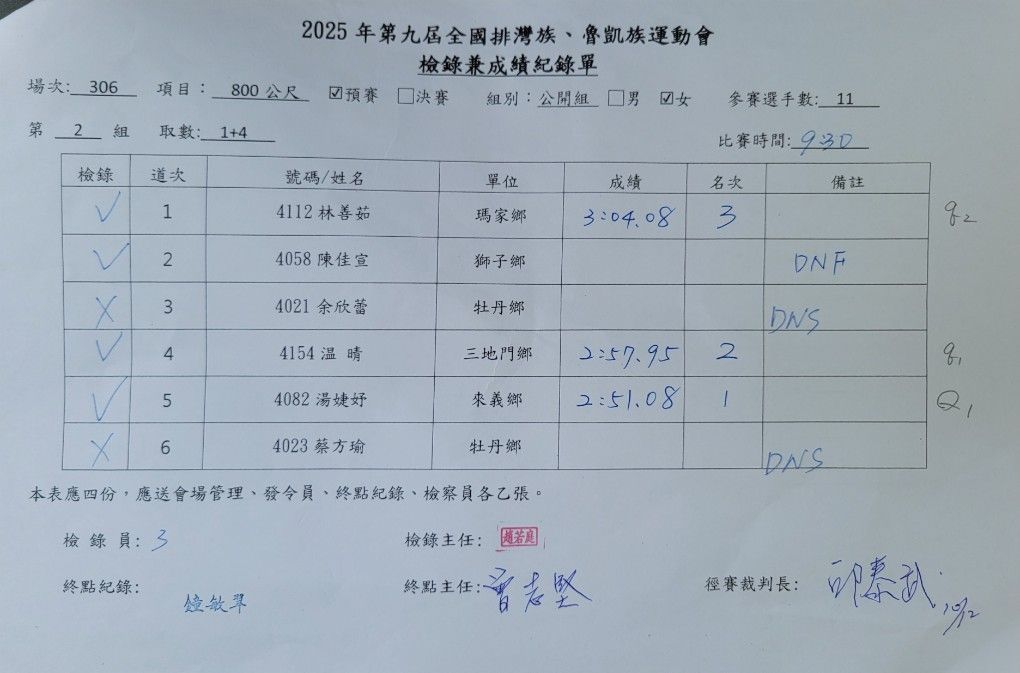 2025 年第九屆全國排灣族、魯凱族運動會
檢錄兼成績紀錄單
場次: 306 項目: 800 公尺 ☑預賽 □決賽 組別：公開組 □男 ☑女 參賽選手數: 11
第 2 組 取數: 1+4 比賽時間: 9:30
檢錄 道次 號碼/姓名 單位 成績 名次 備註
✓ 1 4112 林善茹 瑪家鄉 3:04.08 3 q2
✓ 2 4058 陳佳宣 獅子鄉 DNF
X 3 4021 余欣蕾 牡丹鄉 DNS
✓ 4 4154 温 晴 三地門鄉 2:57.95 2 q1
✓ 5 4082 湯婕妤 來義鄉 2:51.08 1 Q1
X 6 4023 蔡方瑜 牡丹鄉 DNS
本表應四份，應送會場管理、發令員、終點紀錄、檢察員各乙張。
檢 錄 員: 3 檢錄主任: 趙若庭
終點紀錄: 鐘敏翠 終點主任: 曾志堅 徑賽裁判長: 邱泰武 10/12